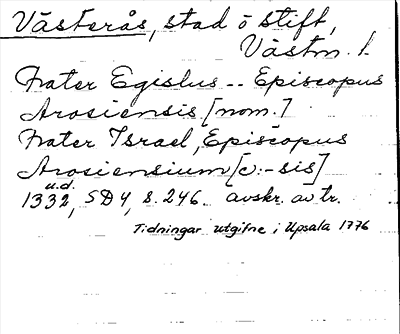 Västerås, stad o stift,
Västm. l.
Frater Egislus -- Episcopus
Arosiensis [nom.]
Frater Israel, Episcopus
Arosiensium [c: -sis]
u.d.
1332, SD 4, s. 246. avskr. av tr.
Tidningar utgifne i Upsala 1776